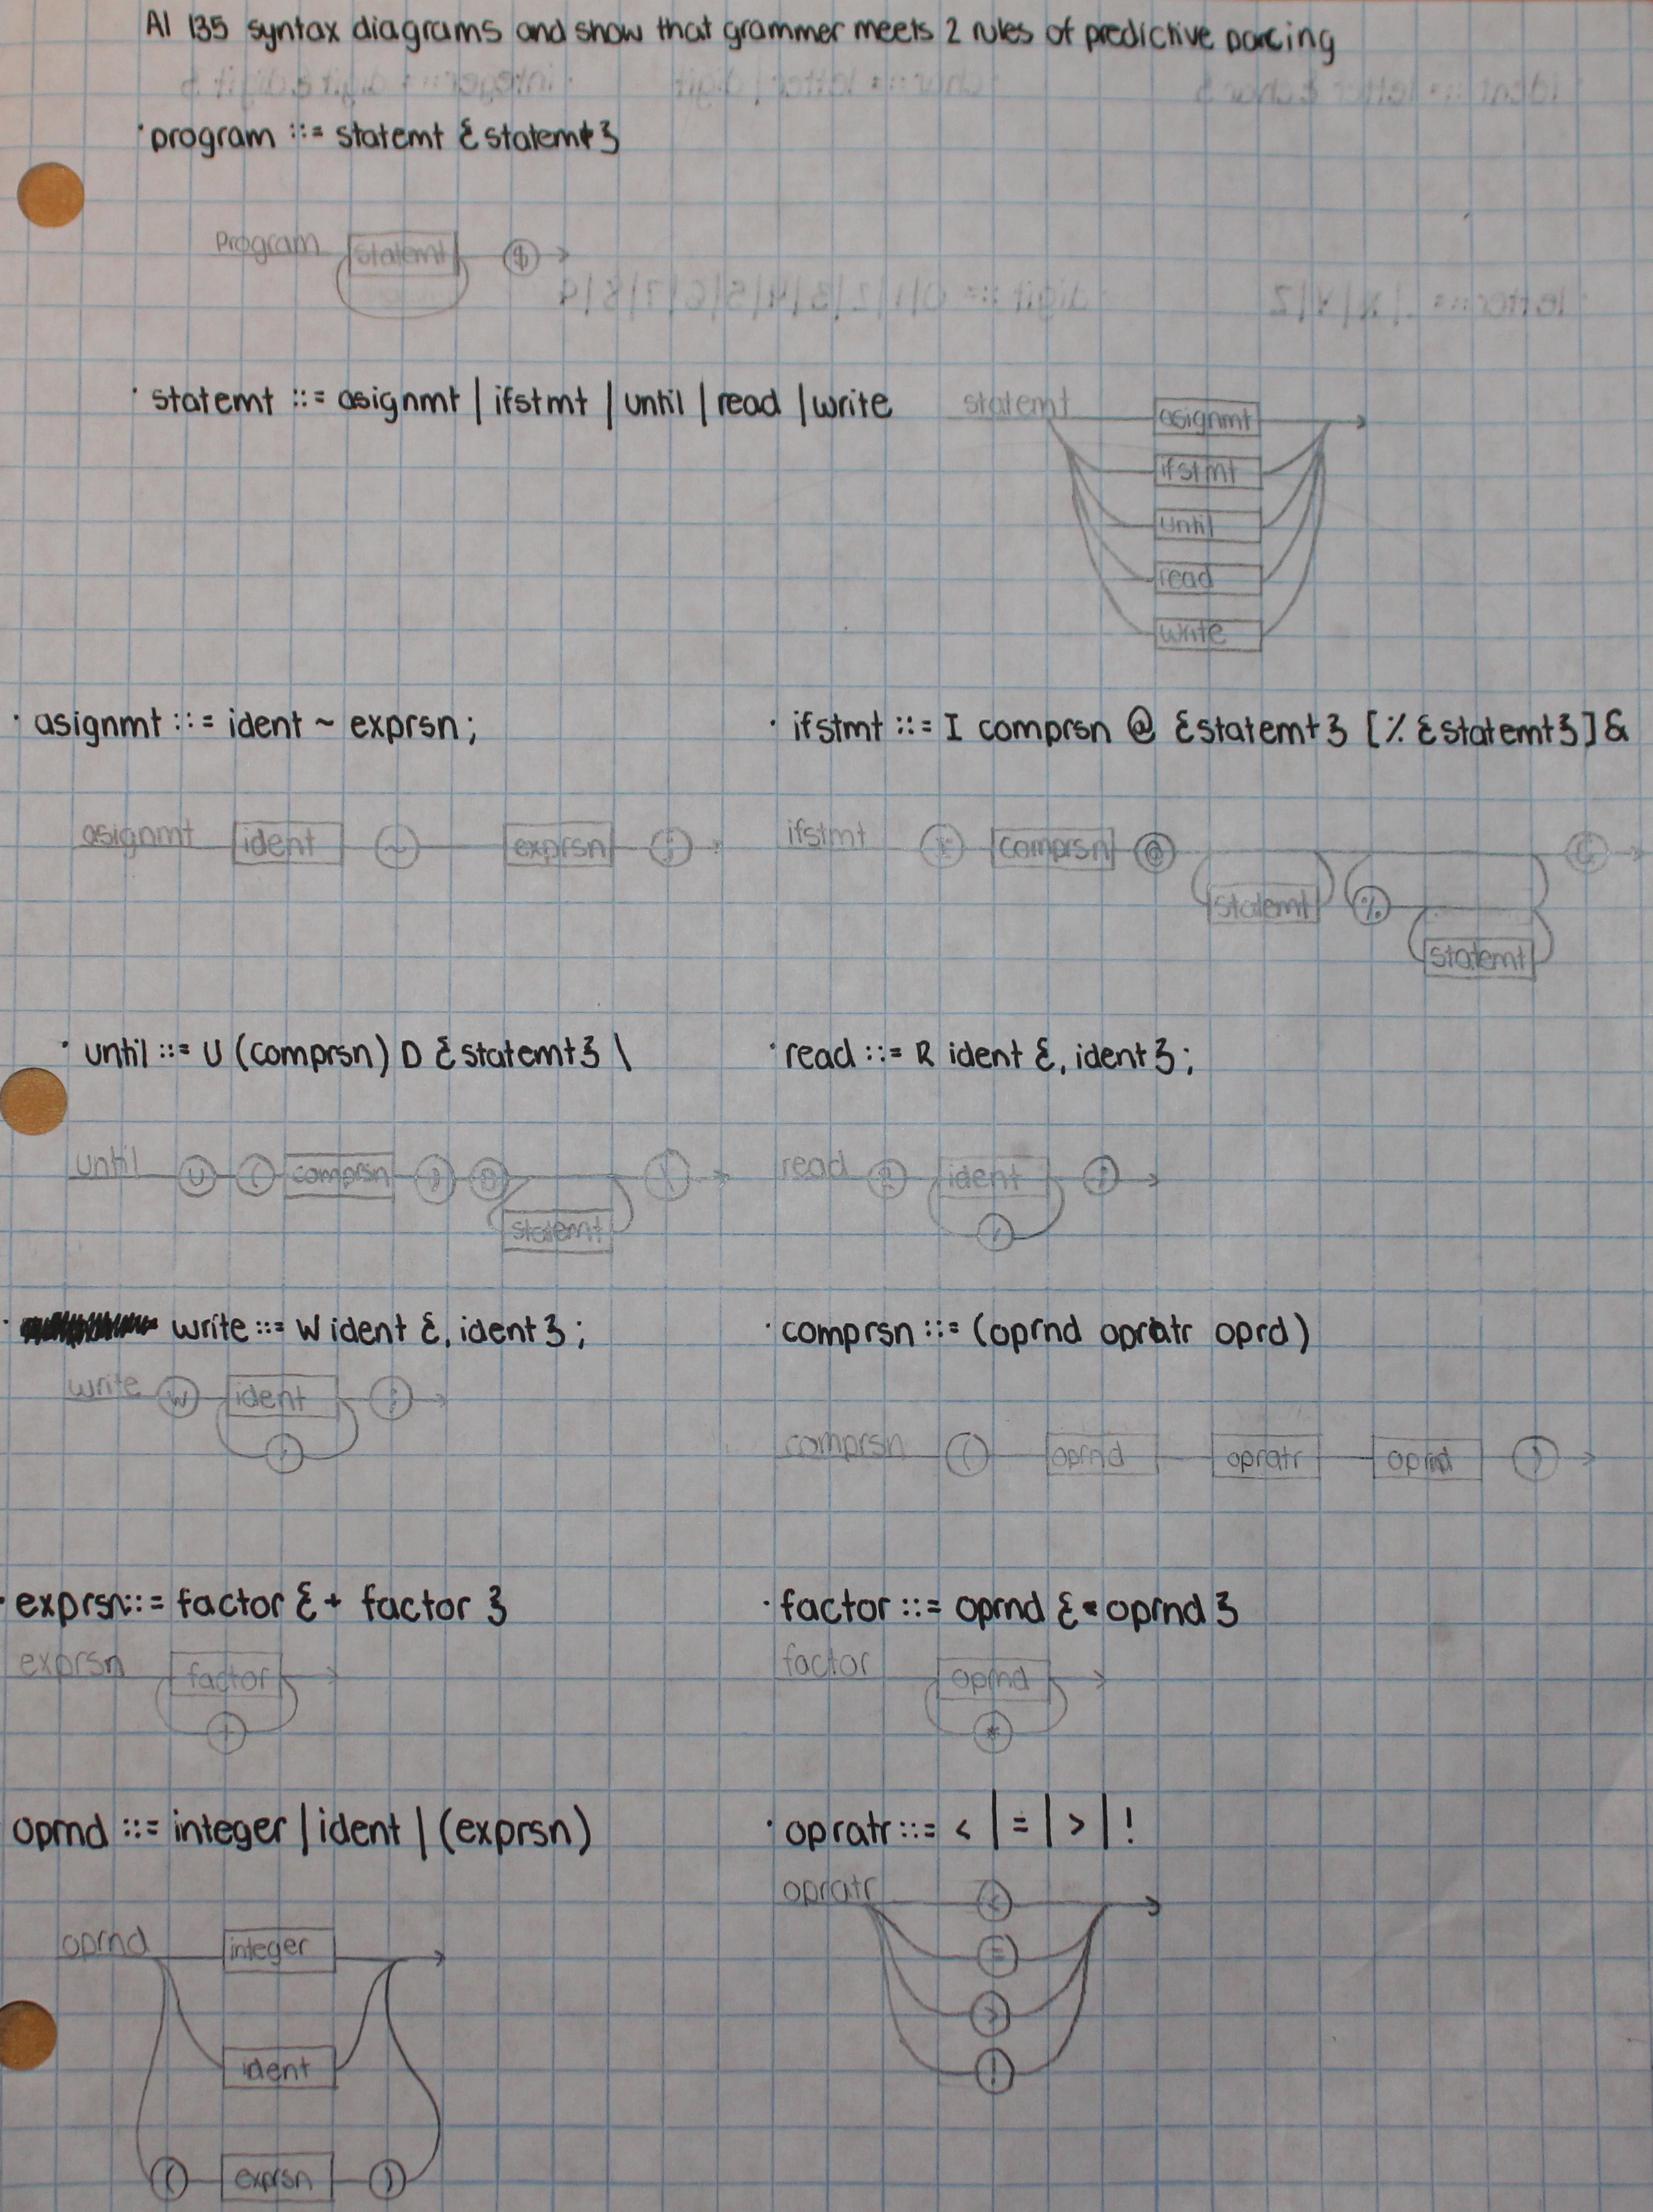 A1 135 syntax diagrams and show that grammer meets 2 rules of predictive parcing
ident ::= letter { char } char ::= letter | digit integer ::= digit { digit }
· program ::= statemt { statemt }
Program statemt $
letter ::= . | X | Y | Z digit ::= 0 | 1 | 2 | 3 | 4 | 5 | 6 | 7 | 8 | 9
· statemt ::= asignmt | ifstmt | until | read | write
statemt asignmt
ifstmt
until
read
write
· asignmt ::= ident ~ exprsn ;
asignmt ident ~ exprsn ;
· ifstmt ::= I comprsn @ { statemt } [ % { statemt } ] &
ifstmt I comprsn @ &
statemt %
statemt
· until ::= U ( comprsn ) D { statemt } \
until U ( comprsn ) D \
statemt
· read ::= R ident { , ident } ;
read R ident ;
,
· write ::= W ident { , ident } ;
write W ident ;
,
· comprsn ::= ( oprnd opratr oprd )
comprsn ( oprnd opratr oprnd )
· exprsn ::= factor { + factor }
exprsn factor
+
· factor ::= oprnd { * oprnd }
factor oprnd
*
oprnd ::= integer | ident | ( exprsn )
oprnd integer
ident
( exprsn )
· opratr ::= < | = | > | !
opratr <
=
>
!